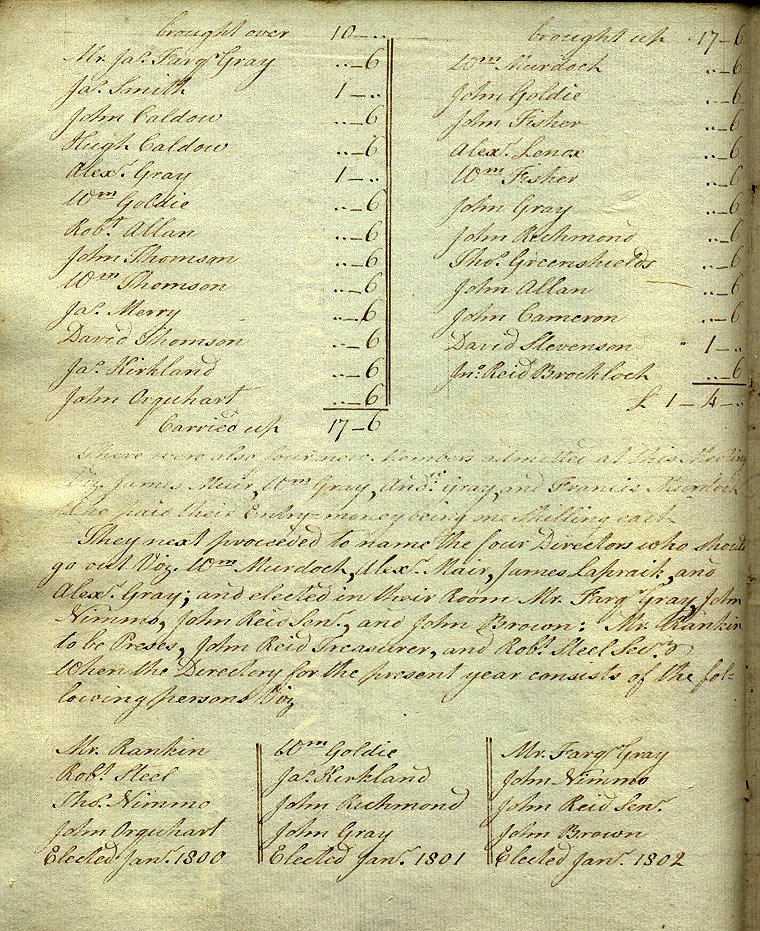 brought over 10 – ..
Mr. Jas. Fargr. Gray .. – 6
Jas. Smith 1 – ..
John Caldow .. – 6
Hugh Caldow .. – 6
Alexr. Gray 1 – ..
Wm Goldie .. – 6
Robt. Allan .. – 6
John Thomson .. – 6
Wm Thomson .. – 6
Jas. Merry .. – 6
David Thomson .. – 6
Jas. Kirkland .. – 6
John Orquhart .. – 6
Carried up 17 – 6
brought up 17 – 6
Wm Murdoch .. – 6
John Goldie .. – 6
John Fisher .. – 6
Alexr. Lenox .. – 6
Wm Fisher .. – 6
John Gray .. – 6
John Richmond .. – 6
Thos. Greenshields .. – 6
John Allan .. – 6
John Cameron .. – 6
David Stevenson 1 – ..
Jno. Reid Brocklock .. – 6
£ 1 – 4 – ..
There were also four new Members admitted at this Meeting
Viz. James Meur, Wm Gray, Andw. Gray, and Francis Murdoch
who paid their Entry-money being one shilling each
They next proceeded to name the four Directors who should
go out Viz. Wm Murdoch, Alexr. Mair, James Lapraik, and
Alexr. Gray; and elected in their Room Mr. Fargr. Gray, John
Nimmo, John Reid Senr., and John Brown: Mr. Rankin
to be Preses, John Reid Treasurer, and Robt. Steel Secry.
When the Directory for the present year consists of the fol-
lowing persons Viz
Mr. Rankin
Robt. Steel
Thos. Nimmo
John Orquhart
Elected Janr. 1800
Wm Goldie
Jas. Kirkland
John Richmond
John Gray
Elected Janr. 1801
Mr. Fargr. Gray
John Nimmo
John Reid Senr.
John Brown
Elected Janr. 1802